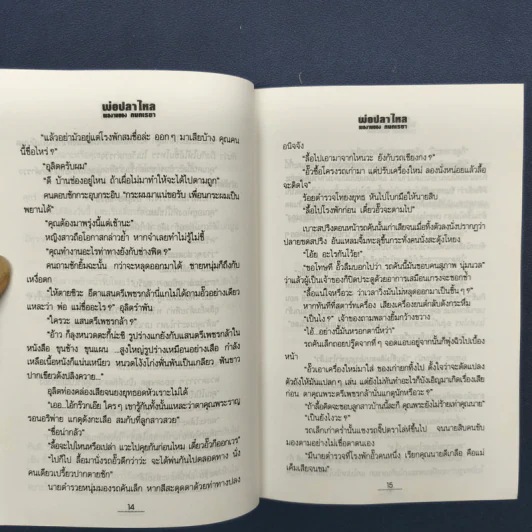 พ่อปลาไหล
"แล้วอย่ามัวอยู่แต่โรงพักสมชื่อล่ะ ออกๆ มาเสียบ้าง คุณคน
นี้ชื่อไหร่ ๆ"
"อุลิตครับผม"
"ดี บ้านช่องอยู่ไหน ถ้าเผื่อไม่มาทำให้จะได้ไปตามถูก"
คนตอบชักกระอุบกระอิบ "กระผมมาแน่ขอรับ เพื่อนกระผมเป็น
พยานได้"
"คุณต้องมาพรุ่งนี้แต่เช้านะ"
หญิงสาวถือโอกาสกล่าวย้ำ หากจำเลยทำไม่รู้ไม่ชี้
"คุณทำงานอะไรท่าทางยังกับช่างฟิต ๆ"
คนถามชักยิ้มฉะนั้น กว่าจะหลุดออกมาได้ ชายหนุ่มก็ถึงกับ
เหงื่อตก
"ให้ตายซิวะ อีตาแสนตรีเพชรกล้านี่แกไม่ได้ถามอั๊วอย่างเดียว
แหละว่า พ่อ แม่ชื่ออะไร ๆ" อุลิตรำพัน
"ใครวะ แสนตรีเพชรกล้า ๆ"
"อ้าว ก็ลุงหนวดตะกี้น่ะซิ รูปร่างแกยังกับแสนตรีเพชรกล้าใน
หนังสือ ขุนช้าง ขุนแผน ...สูงใหญ่รูปร่างเหมือนอย่างเสือ กำลัง
เหลือเนื้อหนังก็แน่นเหนียว หนวดโง้งโก่งพันพันเป็นเกลียว ฟันขาว
ปากเขียวดังปลิงควาย..."
อุลิตท่องคล่องเสียจนยงยุทธอดหัวเราะไม่ได้
"เออ...ไอ้กรัวกเอ๊ย ใครๆ เขารู้กันทั้งนั้นแหละว่าตาคุณพระราญ
รอนอริพ่าย แกดุดังกะเสือ สมกับที่ลูกสาวสวย"
"ชื่อน่ากลัว"
"ลื้อจะไปไหนหรือเปล่า แวะไปคุยกันก่อนไหม เดี๋ยวอั๊วก็ออกเวร"
"ไปก็ไป ลื้อมานั่งรถอั๊วดีกว่าว่ะ จะได้พ้นกันไปตลอดทาง นั่ง
คนเดียวเปรี้ยวปากตายชัก"
นายตำรวจหนุ่มมองรถคันเล็ก หากสีสะดุดตาด้วยท่าทางปลง
14
พ่อปลาไหล
อนิจจัง
"ลื้อไปเอามาจากไหนวะ ยังกับรถเซียงกง ๆ"
"อั๊วซื้อโครงรถเก่ามา แต่ปรับเครื่องใหม่ ลองนั่งหน่อยแล้วลื้อ
จะติดใจ"
ร้อยตำรวจโทยงยุทธ หันไปโบกมือให้นายสิบ
"ลื้อไปโรงพักก่อน เดี๋ยวอั๊วจะตามไป"
เบาะสปริงตอนหน้ารถคันนั้นเก่าเสียจนเมื่อทิ้งตัวลงนั่งปรากฏว่า
ปลายขดสปริง อันแหลมจิ้มทะลุขึ้นกระทั่งคนนั่งสะดุ้งโหยง
"โอ๊ย อะไรกันโว้ย!"
"ขอโทษที อั๊วลืมบอกไปว่า รถคันนี้มันชอบคนสุภาพ นุ่มนวล"
ว่าแล้วผู้เป็นเจ้าของก็ปิดประตูด้วยอาการเสมือนเกรงจะชอกช้ำ
"ลื้อแน่ใจหรือวะ ว่าเวลาวิ่งมันไม่หลุดออกมาเป็นชิ้นๆ ๆ"
หากทันทีที่สตาร์ทเครื่อง เสียงเครื่องยนต์กลับดังกระหึ่ม
"เป็นไง ๆ" เจ้าของถามพลางยิ้มกว้างขวาง
"ไอ้...อย่างนี้มันหรอกตานี่หว่า"
รถคันเล็กถอยปรู๊ดจากที่ๆ จอดแอบอยู่จากนั้นก็พุ่งฉิวไปเบื้อง
หน้า
"อั๊วเอาเครื่องใหม่มาใส่ ของเก่ายกทิ้งไป ตั้งใจว่าจะดัดแปลง
ตัวถังให้มันแปลกๆ เล่น แต่ยังไม่ทันทำอะไรก็บังเอิญมาเกิดเรื่องเสีย
ก่อน ตาคุณพระตรีเพชรกล้านั่นแกดุนักหรือวะ ๆ"
"ถ้าลื้อคิดจะชอบลูกสาวบ้านนี้ละก็ คุณพระยังไม่ร้ายเท่าคุณนาย"
"เป็นยังไงวะ ๆ"
รถเล็กเก่าคร่ำนั้นแซงรถจี๊ปตราโล่ห์ขึ้นไป จนนายสิบคนขับ
มองตามอย่างไม่เชื่อตาตนเอง
"มีนายตำรวจที่โรงพักอั๊วคนหนึ่ง เรียกคุณนายดีเกลือ คือแม่
เค็มเสียจนขม"
15